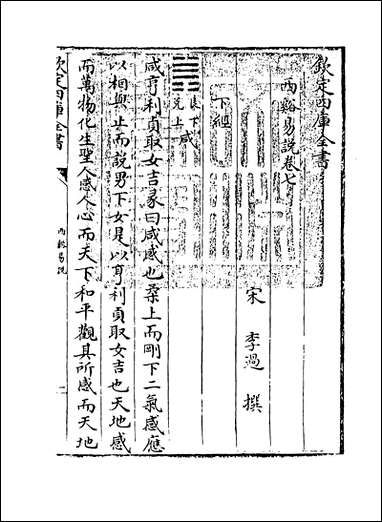 欽定四庫全書
西谿易說卷七
宋 李過 撰
下經
艮下兌上 咸
咸亨利貞取女吉彖曰咸感也柔上而剛下二氣感應
以相與止而說男下女是以亨利貞取女吉也天地感
而萬物化生聖人感人心而天下和平觀其所感而天地
欽定四庫全書
西谿易說
一